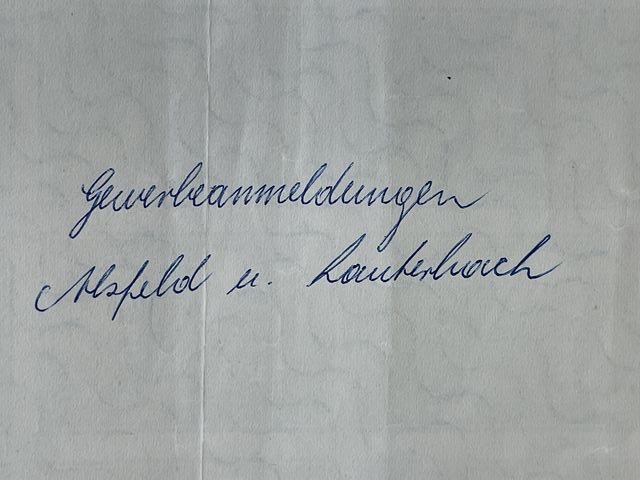 Gewerbeanmeldungen
Alsfeld u. Lauterbach